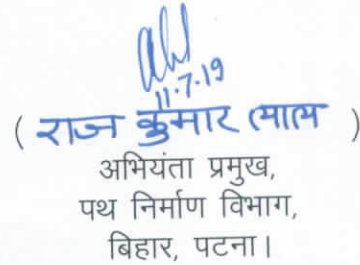 11.7.19
( राज कुमार )
अभियंता प्रमुख,
पथ निर्माण विभाग,
बिहार, पटना।